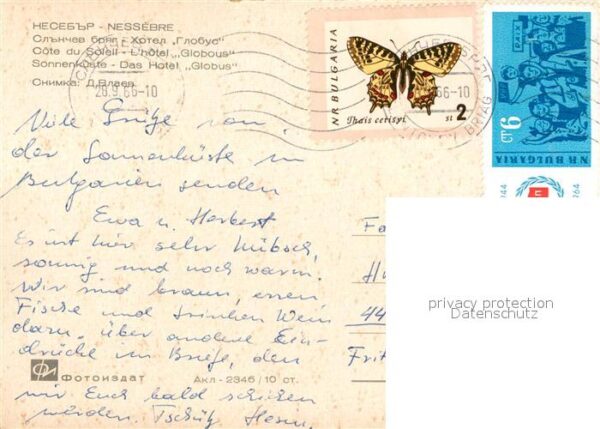 НЕСЕБЪР - NESSÈBRE
Слънчев бряг - Хотел „Глобус"
Côte du Soleil - L'hôtel „Globus"
Sonnenküste - Das Hotel „Globus"
Снимка: Д. Влаев
28.9.66-10
66-10
НРBULGARIA
Thais cerisyi
st 2
6 СТ
N.R. BULGARIA
1944
1964
Viele Grüße von
der Sonnenküste in
Bulgarien senden
Ewa u. Herbert
Es ist hier sehr hübsch,
sonnig und noch warm.
Wir sind braun, essen
Fische und trinken Wein
dazu, über andere Ein-
drücke im Briefe, den
wir Euch bald schicken
werden. Tschüß
Fa
H
44
Frit
privacy protection
Datenschutz
Фотоиздат Акл - 2346 / 10 ст.